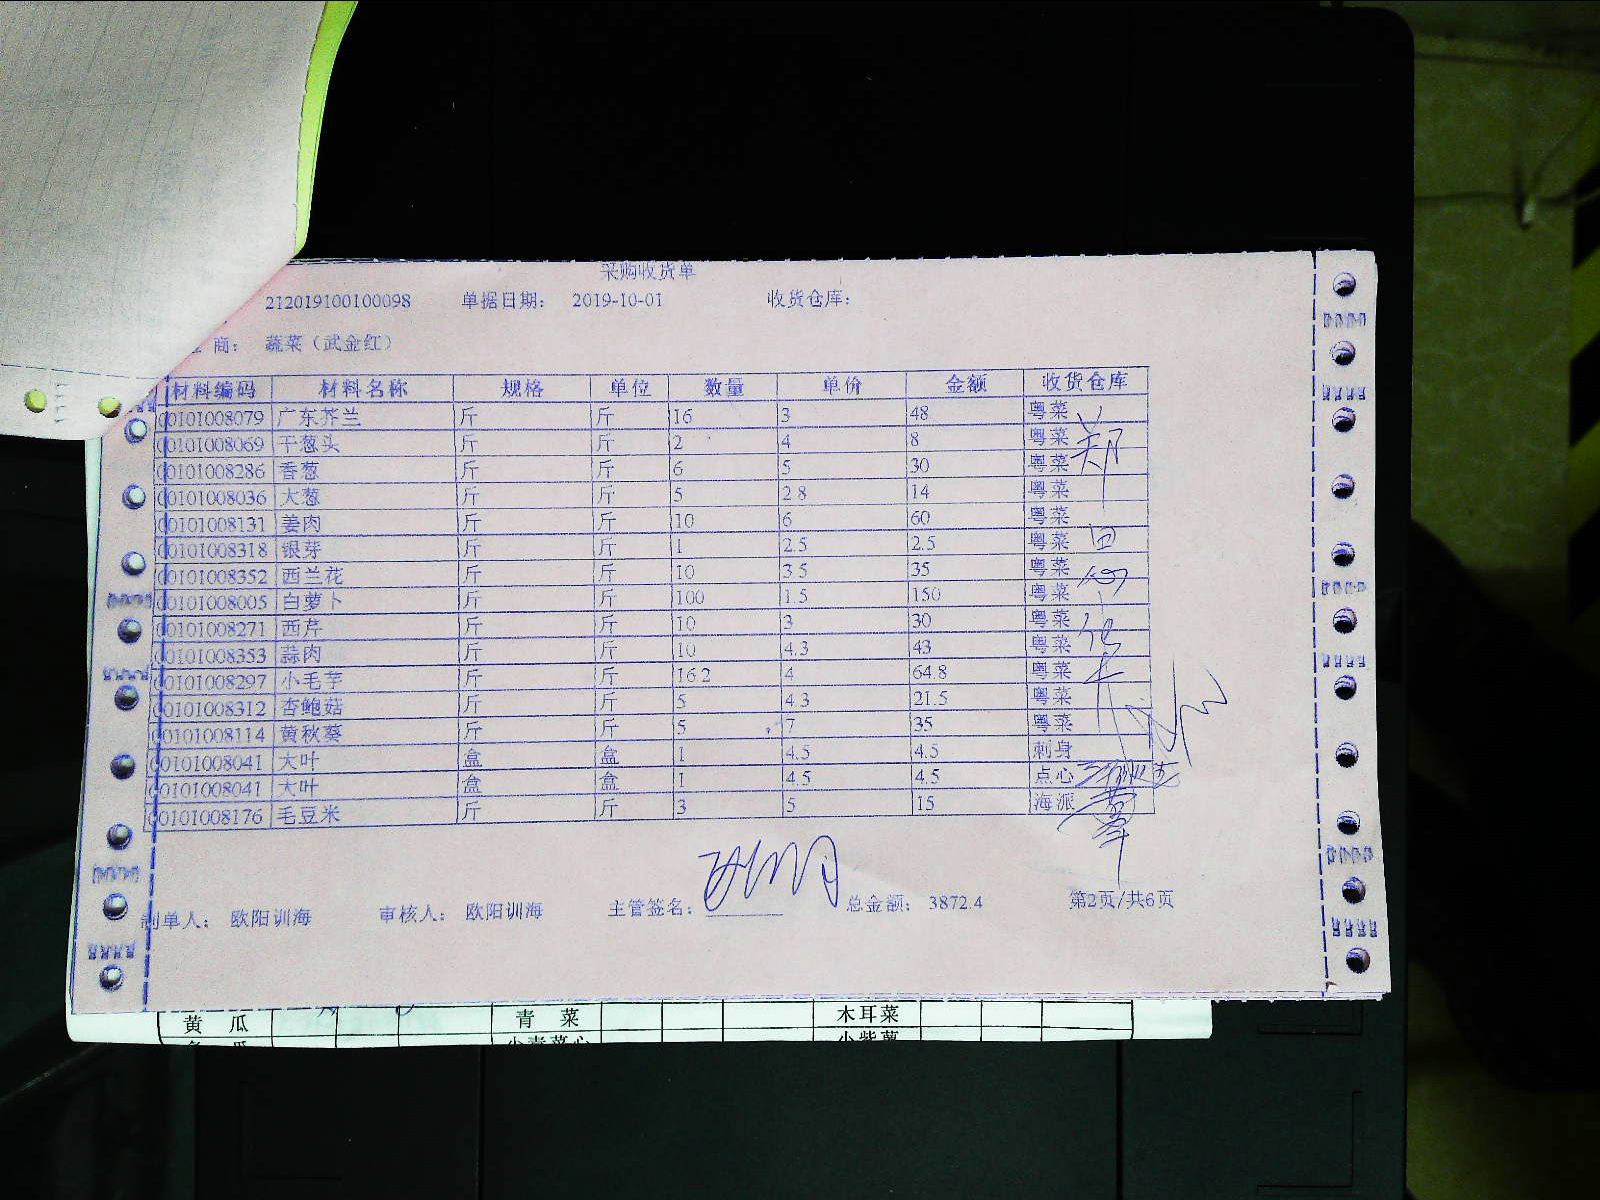 采购收货单
212019100100098 单据日期: 2019-10-01 收货仓库:
商: 蔬菜（武金红）
材料编码 材料名称 规格 单位 数量 单价 金额 收货仓库
00101008079 广东芥兰 斤 斤 16 3 48 粤菜
00101008069 干葱头 斤 斤 2 4 8 粤菜
00101008286 香葱 斤 斤 6 5 30 粤菜
00101008036 大葱 斤 斤 5 2.8 14 粤菜
00101008131 姜肉 斤 斤 10 6 60 粤菜
00101008318 银芽 斤 斤 1 2.5 2.5 粤菜
00101008352 西兰花 斤 斤 10 3.5 35 粤菜
00101008005 白萝卜 斤 斤 100 1.5 150 粤菜
00101008271 西芹 斤 斤 10 3 30 粤菜
00101008353 蒜肉 斤 斤 10 4.3 43 粤菜
00101008297 小毛芋 斤 斤 16.2 4 64.8 粤菜
00101008312 杏鲍菇 斤 斤 5 4.3 21.5 粤菜
00101008114 黄秋葵 斤 斤 5 7 35 粤菜
00101008041 大叶 盒 盒 1 4.5 4.5 刺身
00101008041 大叶 盒 盒 1 4.5 4.5 点心
00101008176 毛豆米 斤 斤 3 5 15 海派
制单人: 欧阳训海 审核人: 欧阳训海 主管签名: 总金额: 3872.4 第2页/共6页
黄 瓜 青 菜 木耳菜